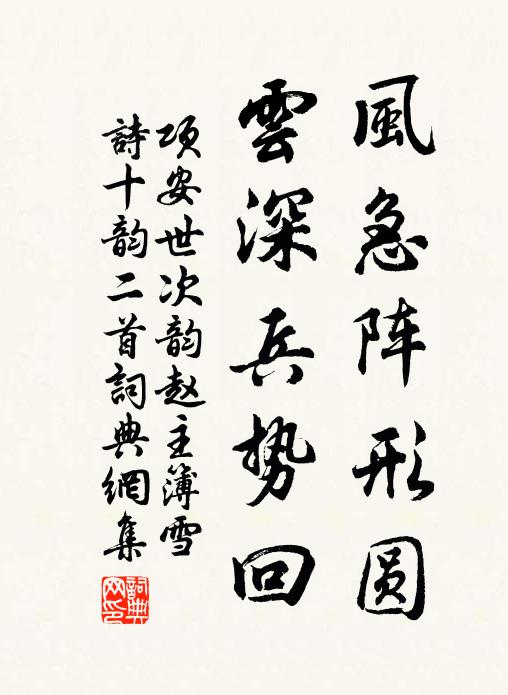 風急阵形圆
雲深兵势回
项安世次韵赵主簿雪
詩十韵二首詞典網集
詞典
网印